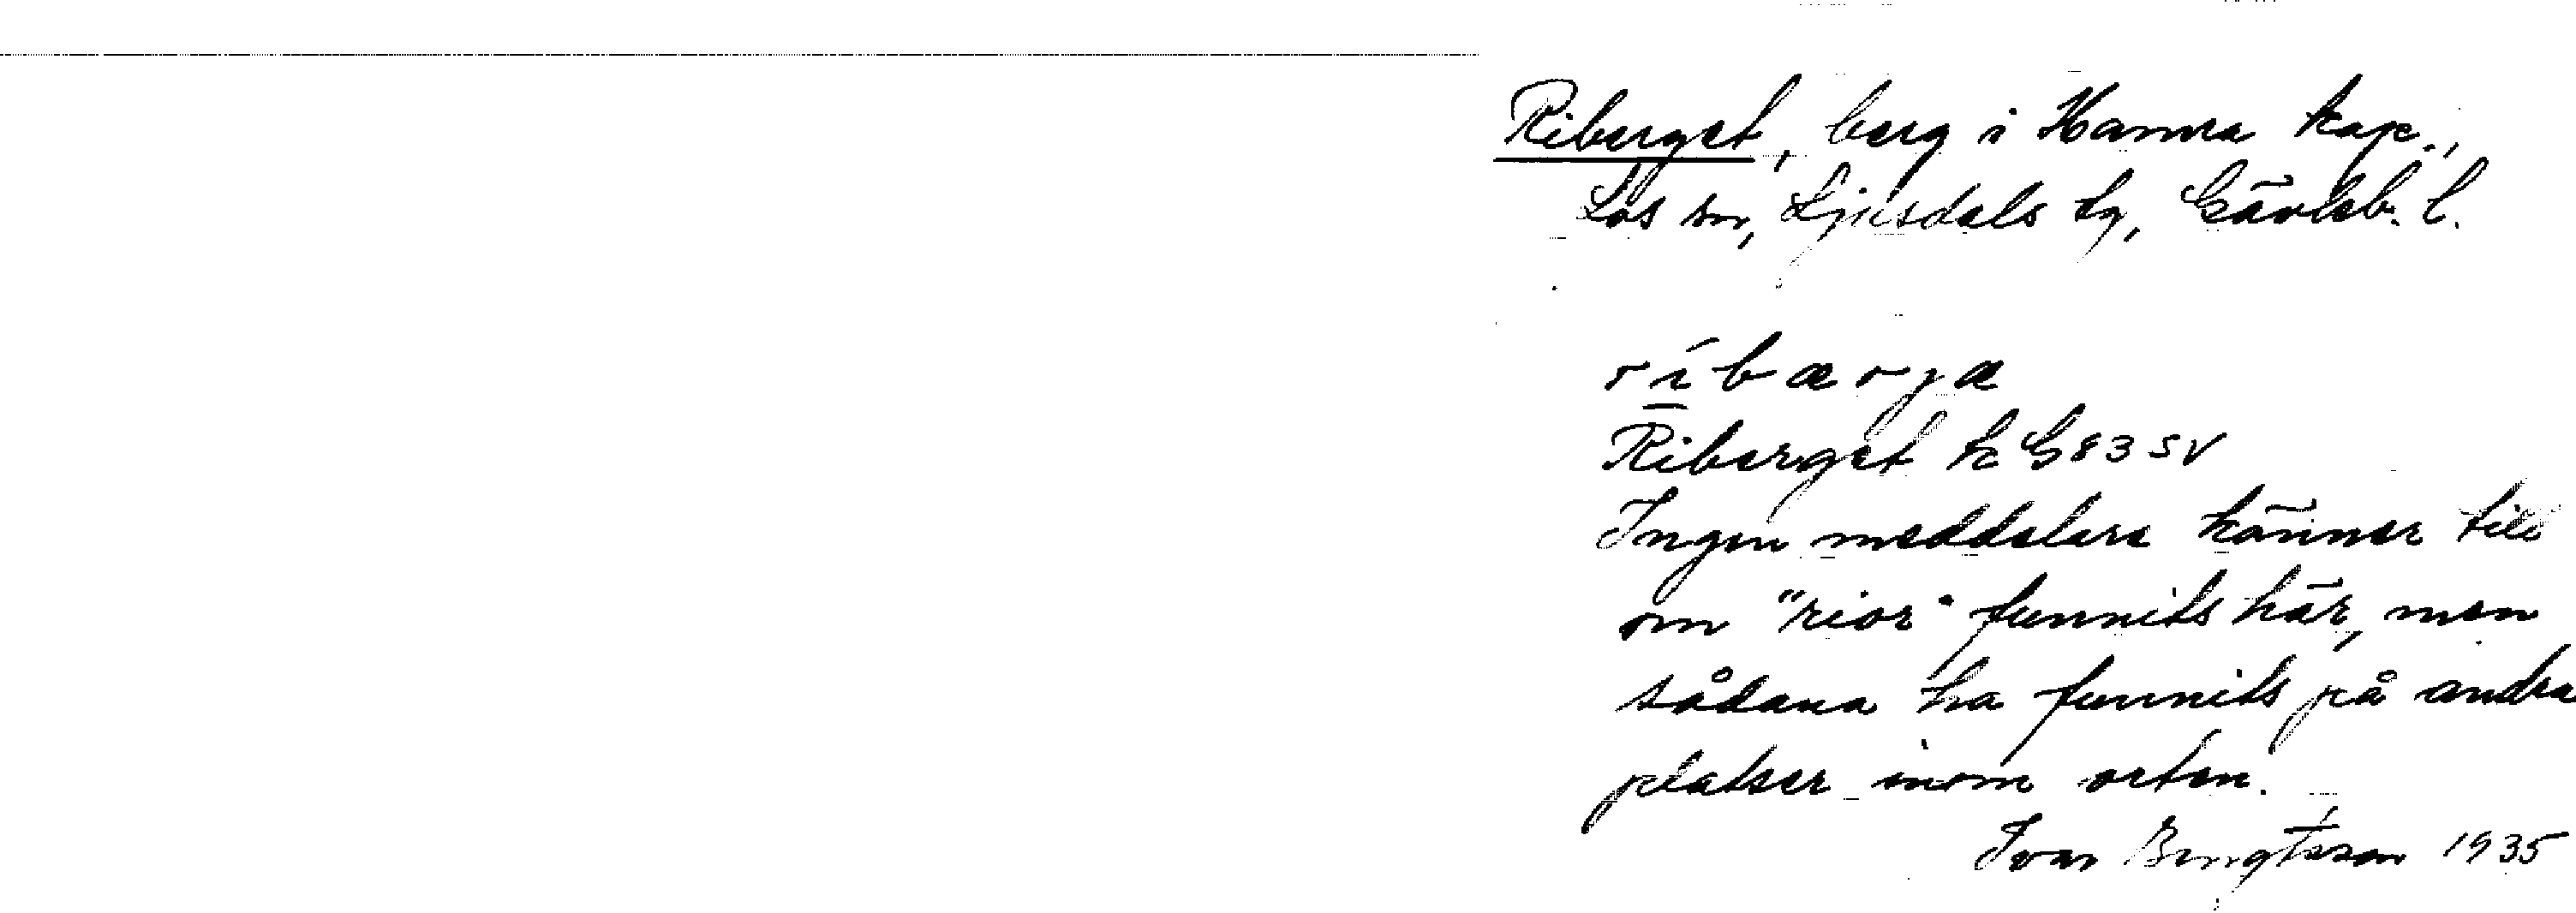 Riberget, berg i Hamra kap.,
Los sn, Ljusdals tg, Gävleb. l.
ríbærjæ
Riberget k G 83 SV
Ingen meddelare känner till
om "rior" funnits här, men
sådana ha funnits på andra
platser inom orten.
Ivar Bengtsson 1935